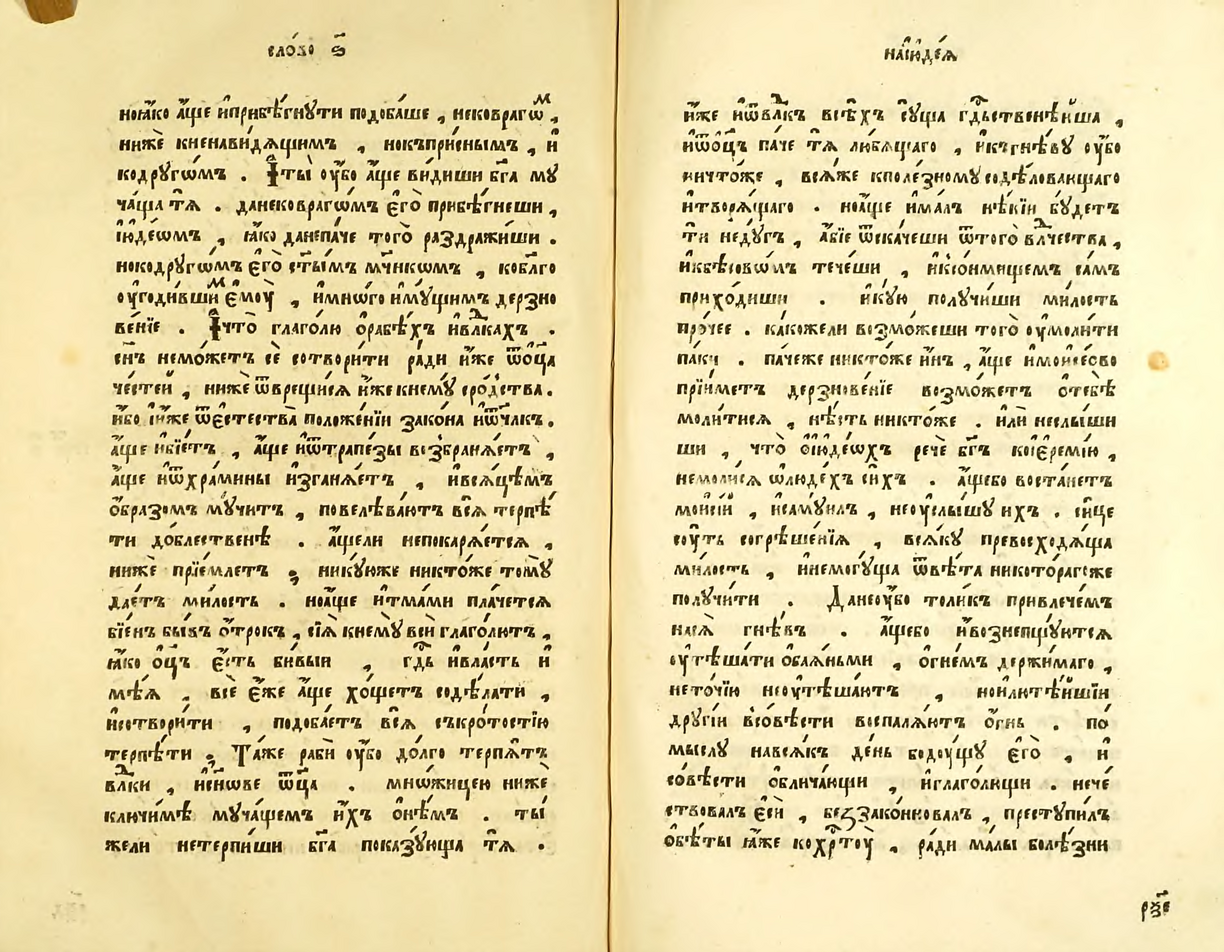 сло́во ѕ҃
но ꙗ҆́ко а҆́ще и҆ прибѣ́гнꙋти подоба́ше , не ко враго́мъ ,
нижѐ к ненави́дѧщимъ , но къ при́снымъ , и҆
ко дрꙋгѡ́мъ . І҆ ты̀ ᲂу҆́бо а҆́ще ви́диши бг҃а мꙋ
ча́ща тѧ̀ . да не ко врагѡ́мъ є҆го̀ прибѣ́гнеши ,
і҆ꙋде́ѡмъ , ꙗ҆́ко да не па́че того̀ раздражи́ши .
но ко дрꙋгѡ́мъ є҆го̀ ст҃ы́мъ мч҃нкѡмъ , ко бл҃го
ᲂу҆годи́вшимъ є҆мꙋ̀ , и҆ мно́го и҆мꙋ́щимъ дерзно
ве́нїе . І҆ что̀ глаго́лю ѡ҆ рабѣ́хъ и҆ влⷣкахъ .
сн҃ъ не мо́жетъ сегѐ сотвори́ти ра́ди и҆́же ѿ ѻ҆ц҃а
че́стей , нижѐ ѿврещи́сѧ и҆́же к немꙋ̀ сро́дства .
и҆́бо и҆ и҆́же ѿ є҆стества̀ положе́нїи зако́на и҆ ѿча́къ .
а҆́ще и҆ бїе́тъ , а҆́ще и҆ ѿ трапе́зы возбранѧ́етъ ,
а҆́ще и҆ ѿ хра́мины и҆зганѧ́етъ , и҆ всѧ́цѣмъ
ѻ҆́бразомъ мꙋ́читъ , повелѣва́ютъ всѧ̀ терпѣ́
ти до́блественѣ . а҆́щели не покарѧ́етсѧ ,
нижѐ прїе́млетъ ; никꙋ́юже никто́же томꙋ̀
дае́тъ ми́лость . но а҆́ще и҆ тма́ми пла́четсѧ
бїе́нъ бы́въ ѻ҆́трокъ , сїѧ̀ к немꙋ̀ всѝ глаго́лютъ ,
ꙗ҆́ко ѻ҆ц҃ъ є҆́сть би́выи , гдⷭ҇ь и҆ вла́сть и҆
мѣ́ѧ , всѐ є҆́же а҆́ще хо́щетъ содѣ́лати ,
и҆ сотвори́ти , подоба́етъ всѧ̀ съ кро́тостїю
терпѣ́ти . Та́же рабѝ ᲂу҆́бо до́лго терпѧ́тъ
влⷣки , и҆ сн҃ове ѻ҆тца̀ . мно́жицею нижѐ
ключи́мѣ мꙋча́щемъ и҆́хъ ѻ҆нѣ́мъ . ты́
жели не терпи́ши бг҃а показꙋ́юща тѧ̀ .
на і҆ꙋде́ѧ
и҆́же и҆ ѿ влⷣкъ всѣ́хъ сꙋ́ща гдⷭ҇ьственнѣ́йша ,
и҆ ѿ ѻ҆ц҃ъ па́че тѧ̀ лю́бѧщаго , и҆ къ гнѣ́вꙋ ᲂу҆́бо
ничто́же , всѧ́же к поле́зномꙋ содѣ́ловающаго
и҆ творѧ́щаго . но а҆́ще и҆ ма́лъ нѣ́кїи бꙋ́детъ
тѝ недꙋ́гъ , а҆́бїе ѿска́чеши ѿ того̀ влⷣчества ,
и҆ к бѣсовѡ́мъ тече́ши , и҆ к со́нмищемъ са́мъ
прихо́диши . и҆ кꙋ́ю полꙋ́чиши ми́лость
про́чее . ка́коже ли возмо́жеши того̀ ᲂу҆моли́ти
па́ки . па́чеже никто́же и҆́нъ , а҆́ще и҆ моисе́ово
прїи́метъ дерзнове́нїе возмо́жетъ ѡ҆ тебѣ̀
моли́тисѧ , нѣ́сть никто́же . и҆лѝ не слы́ши
ши , что̀ ѡ҆ і҆ꙋде́ѡхъ речѐ бг҃ъ ко і҆еремі́ю ,
не моли́сѧ ѡ҆ лю́дехъ си́хъ . а҆́щебо воста́нетъ
мѡисі́й , и҆ самꙋи́лъ , не ᲂу҆слы́шꙋ и҆́хъ . си́це
сꙋ́ть согрѣше́нїѧ , всѧ́кꙋ превосходѧ́ща
ми́лость , и҆ не могꙋ́ща ѿвѣ́та никото́рагоже
полꙋчи́ти . Да не ᲂу҆́бо толи́къ привлече́мъ
на сѧ̀ гнѣ́въ . а҆́щебо и҆ вознепщꙋ́ютсѧ
ᲂу҆тѣша́ти ѻ҆баѧ́ньми , ѻ҆гне́мъ держи́маго ,
не то́чїю не ᲂу҆тѣша́ютъ , но и҆ лютѣ́йшїи
дрꙋгі́и в со́вѣсти воспалѧ́ютъ ѻ҆́гнь . по
мы́слꙋ на всѧ́къ де́нь бодꙋ́щꙋ є҆го̀ , и҆
со́вѣсти ѻ҆блича́ющи , и҆ глаго́лющи . нече́
ствовалъ є҆сѝ , беззако́нновалъ , преступи́лъ
ѻ҆бѣ́ты ꙗ҆́же ко хрⷭ҇тꙋ̀ , ра́ди ма́лы болѣ́зни
рѯ҃е